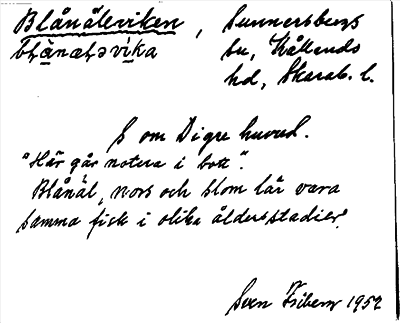 Blånåleviken, Sunnersbergs
sn, Kållands
hd, Skarab. l.
S om Digre huvud.
"Här går notera i bott".
Blånål, nors och slom lär vara
samma fisk i olika åldersstadier.
Sven Friberg 1952